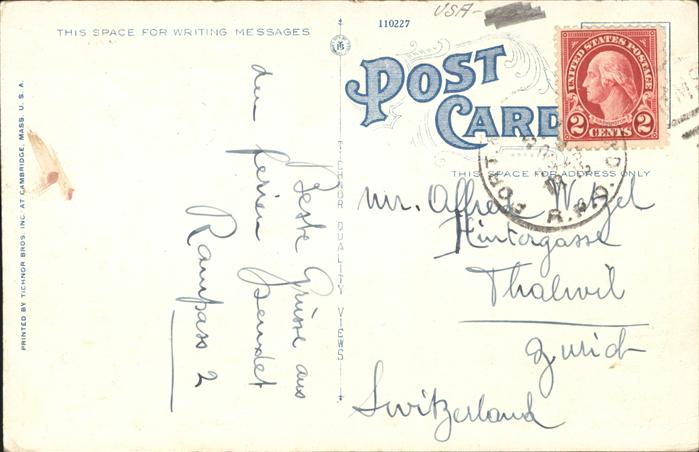 USA-
THIS SPACE FOR WRITING MESSAGES
110227
POST
CARD
UNITED STATES POSTAGE
WASHINGTON
2 CENTS 2
THIS SPACE FOR ADDRESS ONLY
FORT
R.P.O.
Mr. Alfred Wetzel
Hintergasse
Thalwil
Zürich
Switzerland
Beste Grüsse aus
den Ferien sendet
Rampass 2
TICHNOR QUALITY VIEWS
PRINTED BY TICHNOR BROS. INC. AT CAMBRIDGE, MASS. U. S. A.